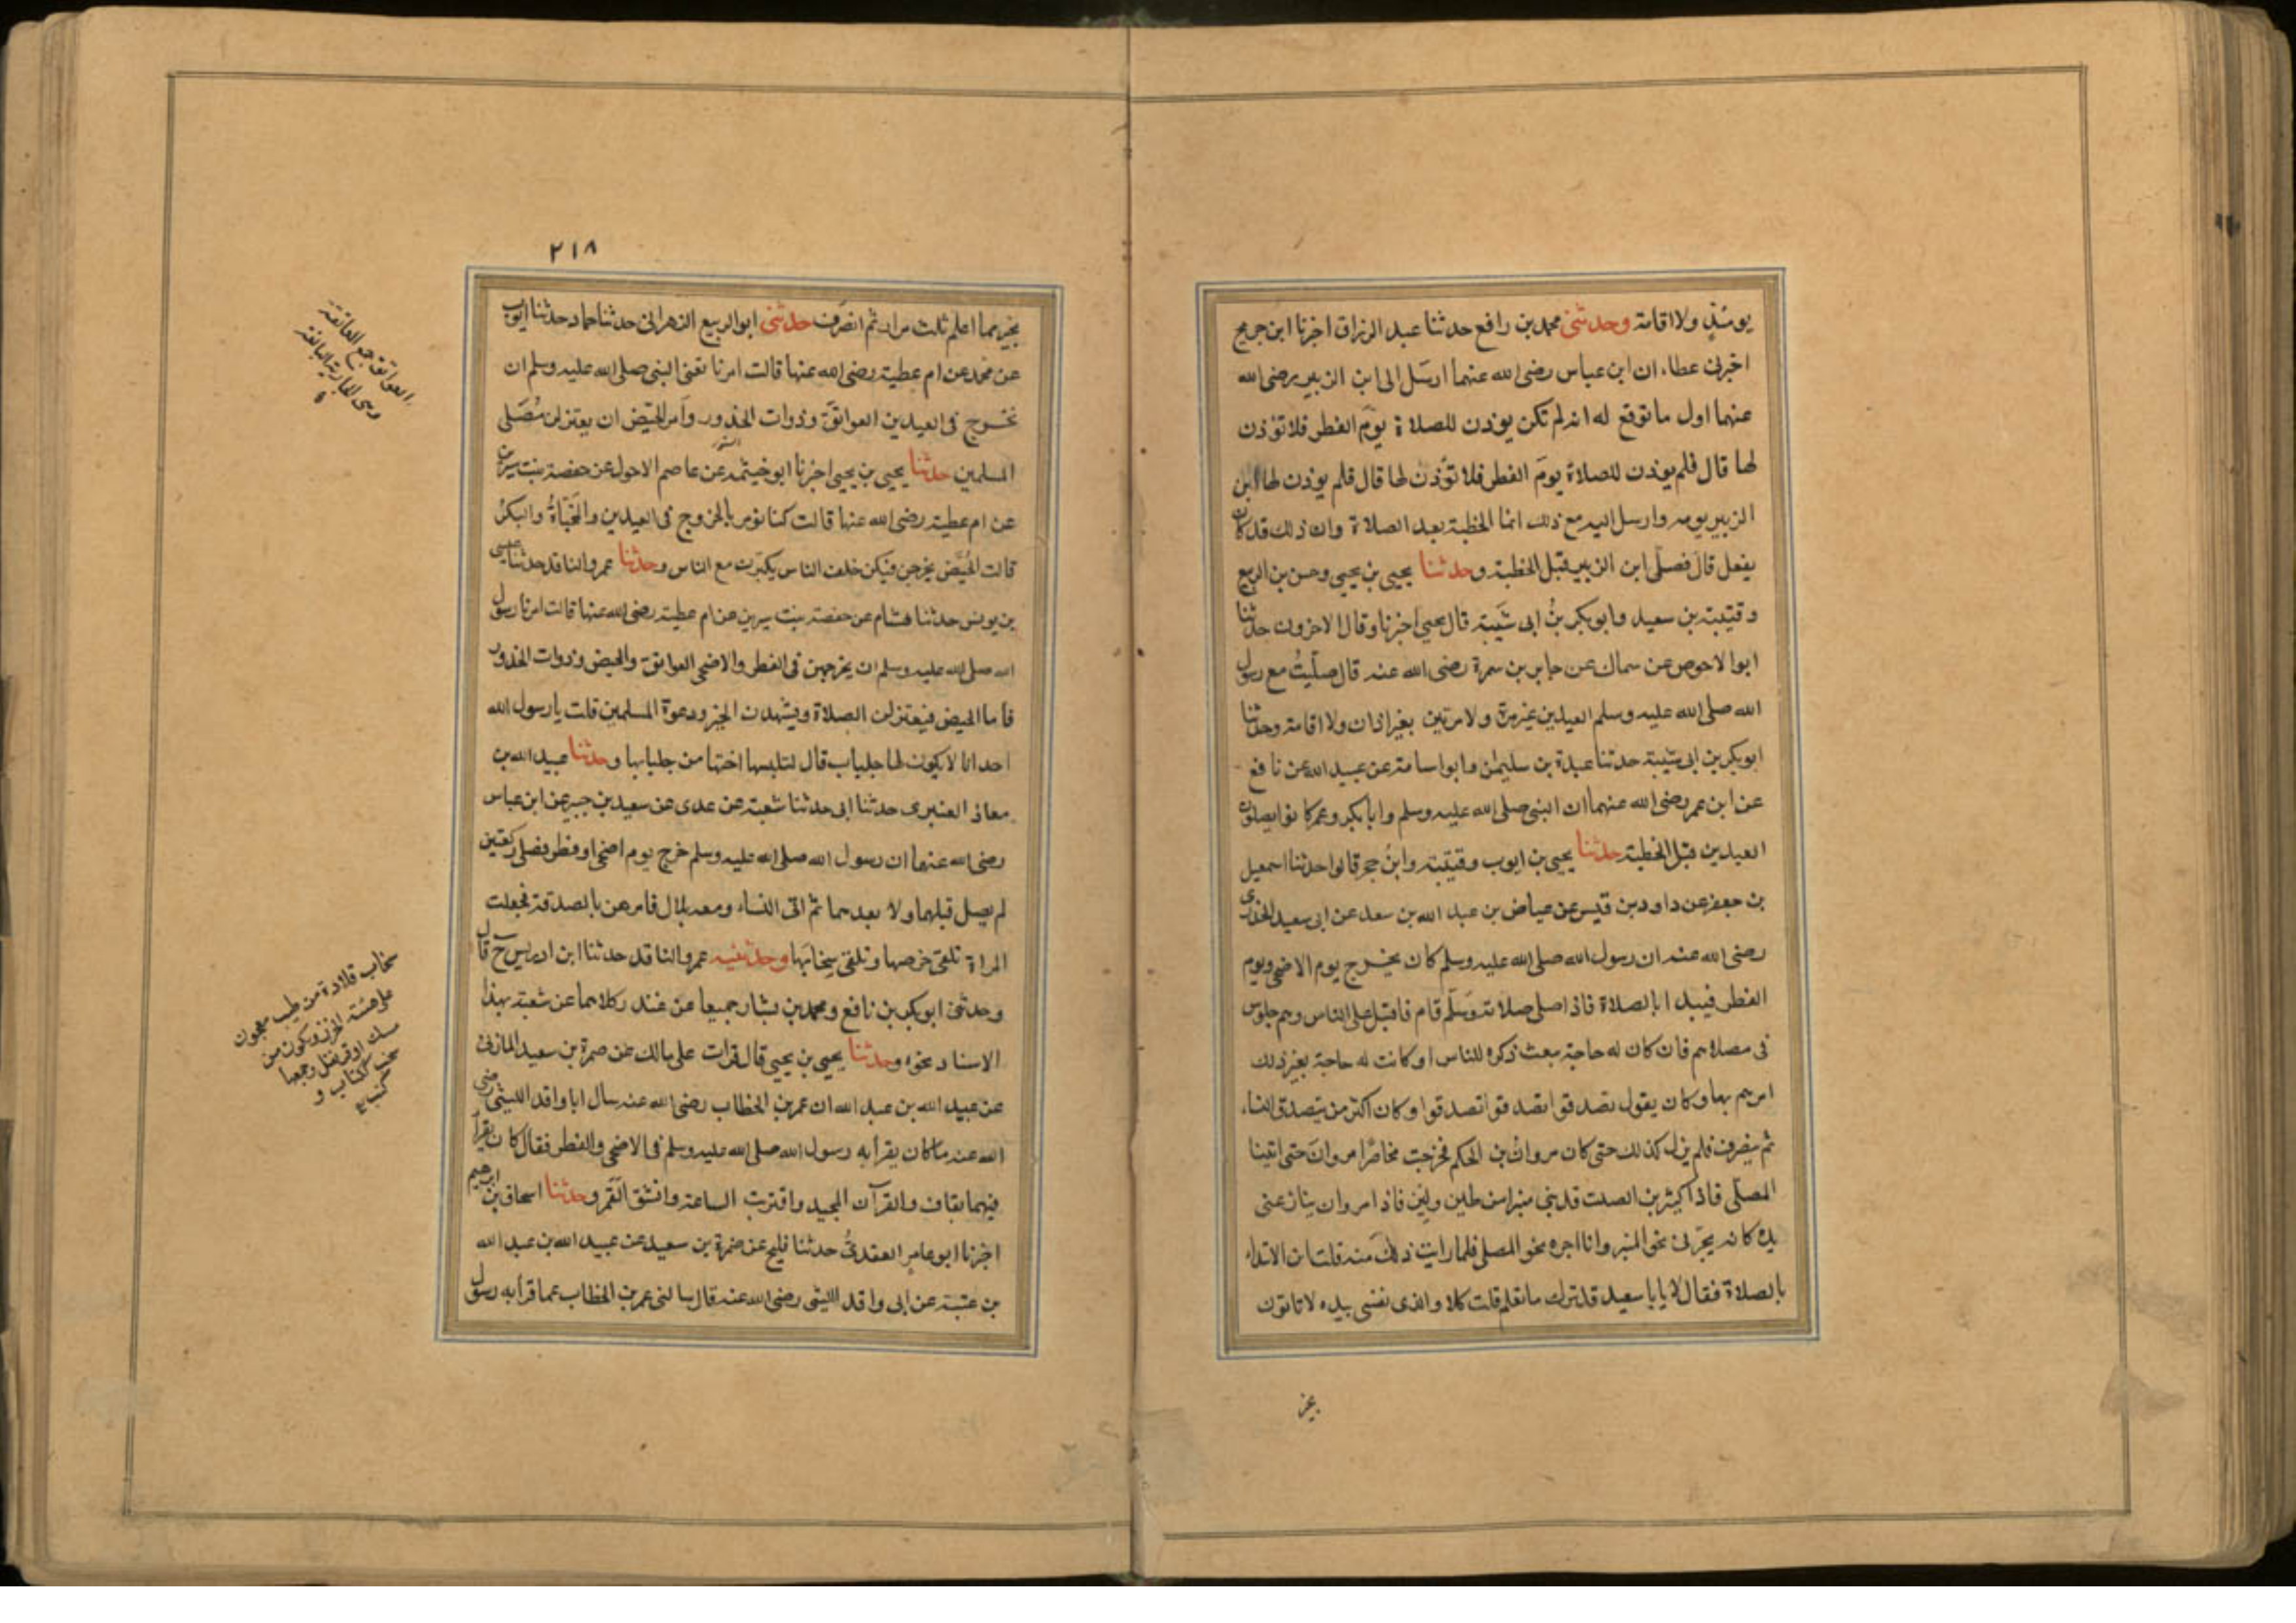 يومئذٍ ولا اقامة وحدثنى محمد بن رافع حدثنا عبد الرزاق اخبرنا ابن جريج
اخبرنى عطاء ان ابن عباس رضى الله عنهما ارسل الى ابن الزبير رضى الله
عنهما اول ما بويع له انه لم تكن يوذن للصلاة يوم الفطر فلا تؤذن
لها قال فلم يوذن للصلاة يوم الفطر فلا تؤذن لها قال فلم يوذن لها ابن
الزبير يومه وارسل اليه مع ذلك انما الخطبة بعد الصلاة وان ذلك قد كان
يفعل قال فصلى ابن الزبير قبل الخطبة وحدثنا يحيى بن يحيى وحسن بن الربيع
وقتيبة بن سعيد وابو بكر بن ابى شيبة قال يحيى اخبرنا وقال الاخرون حدثنا
ابو الاحوص عن سماك عن جابر بن سمرة رضى الله عنه قال صليتُ مع رسول
الله صلى الله عليه وسلم العيدين غير مرة ولا مرتين بغير اذان ولا اقامة وحدثنا
ابو بكر بن ابى شيبة حدثنا عبدة بن سليمن وابو اسامة عن عبيد الله عن نافع
عن ابن عمر رضى الله عنهما ان النبى صلى الله عليه وسلم وابا بكر وعمر كانوا يصلون
العيدين قبل الخطبة حدثنا يحيى بن ايوب وقتيبة وابن حجر قالوا حدثنا اسمعيل
بن جعفر عن داود بن قيس عن عياض بن عبد الله بن سعد عن ابى سعيد الخدرى
رضى الله عنه ان رسول الله صلى الله عليه وسلم كان يخرج يوم الاضحى ويوم
الفطر فيبدا بالصلاة فاذا صلى صلاته وسلّم قام فاقبل على الناس وهم جلوس
فى مصلاهم فان كان له حاجة ببعث ذكره للناس او كانت له حاجة بغير ذلك
امرهم بها وكان يقول تصدقوا تصدقوا تصدقوا وكان اكثر من يتصدق النساء
ثم ينصرف فلم يزل كذلك حتى كان مروان بن الحكم فخرجت مخاصرا مروان حتى اتينا
المصلّى فاذا كثير بن الصلت قد بنى منبرا من طين ولبن فاذا مروان ينازعنى
يده كانه يجرنى نحو المنبر وانا اجره نحو المصلى فلما رايت ذلك منه قلت اين الابتداء
بالصلاة فقال لا يابا سعيد قد ترك ما تعلم قلت كلا والذى نفسى بيده لا تاتون
بخير
٢١٨
بخير مما اعلم ثلث مرار ثم انصرف حدثنى ابو الربيع الزهرانى حدثنا حماد حدثنا ايوب
عن محمد عن ام عطية رضى الله عنها قالت امرنا تعنى النبى صلى الله عليه وسلم ان
نخرج فى العيدين العواتق وذوات الخدور وامر الحيّض ان يعتزلن مُصَلى
المسلمين حدثنا يحيى بن يحيى اخبرنا ابو خيثمة عن عاصم الاحول عن حفصة بنت سيرين
عن ام عطية رضى الله عنها قالت كنا نؤمر بالخروج فى العيدين والمخبّاةُ والبكرُ
قالت الحُيَّض يخرجن فيكن خلف الناس يكبّرن مع الناس وحدثنا عمرو الناقد حدثنا عيسى
بن يونس حدثنا هشام عن حفصة بنت سيرين عن ام عطية رضى الله عنها قالت امرنا رسول
الله صلى الله عليه وسلم ان نخرجهن فى الفطر والاضحى العواتق والحيض وذوات الخدور
فاما الحيض فيعتزلن الصلاة ويشهدن الخير ودعوة المسلمين قلت يا رسول الله
احدانا لا يكون لها جلباب قال لتلبسها اختها من جلبابها وحدثنا عبيد الله بن
معاذ العنبرى حدثنا ابى حدثنا شعبة عن عدى عن سعيد بن جبير عن ابن عباس
رضى الله عنهما ان رسول الله صلى الله عليه وسلم خرج يوم اضحى او فطر فصلى ركعتين
لم يصل قبلهما ولا بعدهما ثم اتى النساء ومعه بلال فامرهن بالصدقة فجعلت
المراة تلقى خرصها وتلقى سخابها وحدثنيه عمرو الناقد حدثنا ابن ادريس ح قال
وحدثنى ابو بكر بن نافع ومحمد بن بشار جميعا عن غندر كلاهما عن شعبة بهذا
الاسناد نحوه وحدثنا يحيى بن يحيى قال قرات على مالك عن ضمرة بن سعيد المازنى
عن عبيد الله بن عبد الله ان عمر بن الخطاب رضى الله عنه سال ابا واقد الليثى رضى
الله عنه ما كان يقرأ به رسول الله صلى الله عليه وسلم فى الاضحى والفطر فقال كان يقرأ
فيهما بقاف والقرآن المجيد واقتربت الساعة وانشق القمر وحدثنا اسحاق بن ابرهيم
اخبرنا ابو عامر العقدىُّ حدثنا فليح عن ضمرة بن سعيد عن عبيد الله بن عبد الله
بن عتبة عن ابى واقد الليثى رضى الله عنه قال سالنى عمر بن الخطاب عما قرأ به رسول
العواتق جمع العاتقة
وهى الجارية البالغة
سخاب قلادة من طيب معجون
على هيئة الخرز ويكون من
مسك او قرنفل وجمعها
سخب ككتاب و
كتب